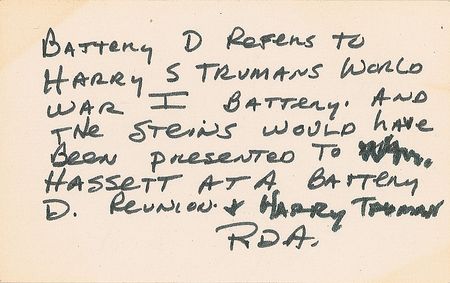 Battery D Refers to
Harry S Trumans World
War I Battery. And
the Steins would have
been presented to Wm.
Hassett at a Battery
D. Reunion. & Harry Truman
RDA.